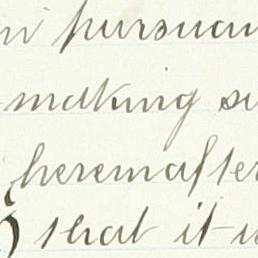 in pursuan
making su
hereinafter
that it w